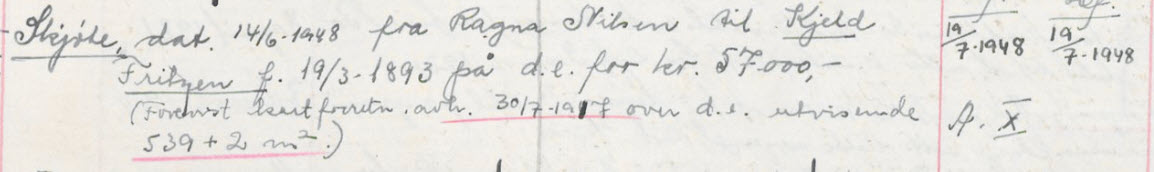 Skjøte, dat. 14/6-1948 fra Ragna Nilsen til Kjeld
Fritzen f. 19/3-1893 på d.e. for kr. 57.000,-
(Forevist kartforretn. avh. 30/7-1917 over d.e. utvisende
539 + 2 m².)
19/7-1948 19/7-1948
A. X